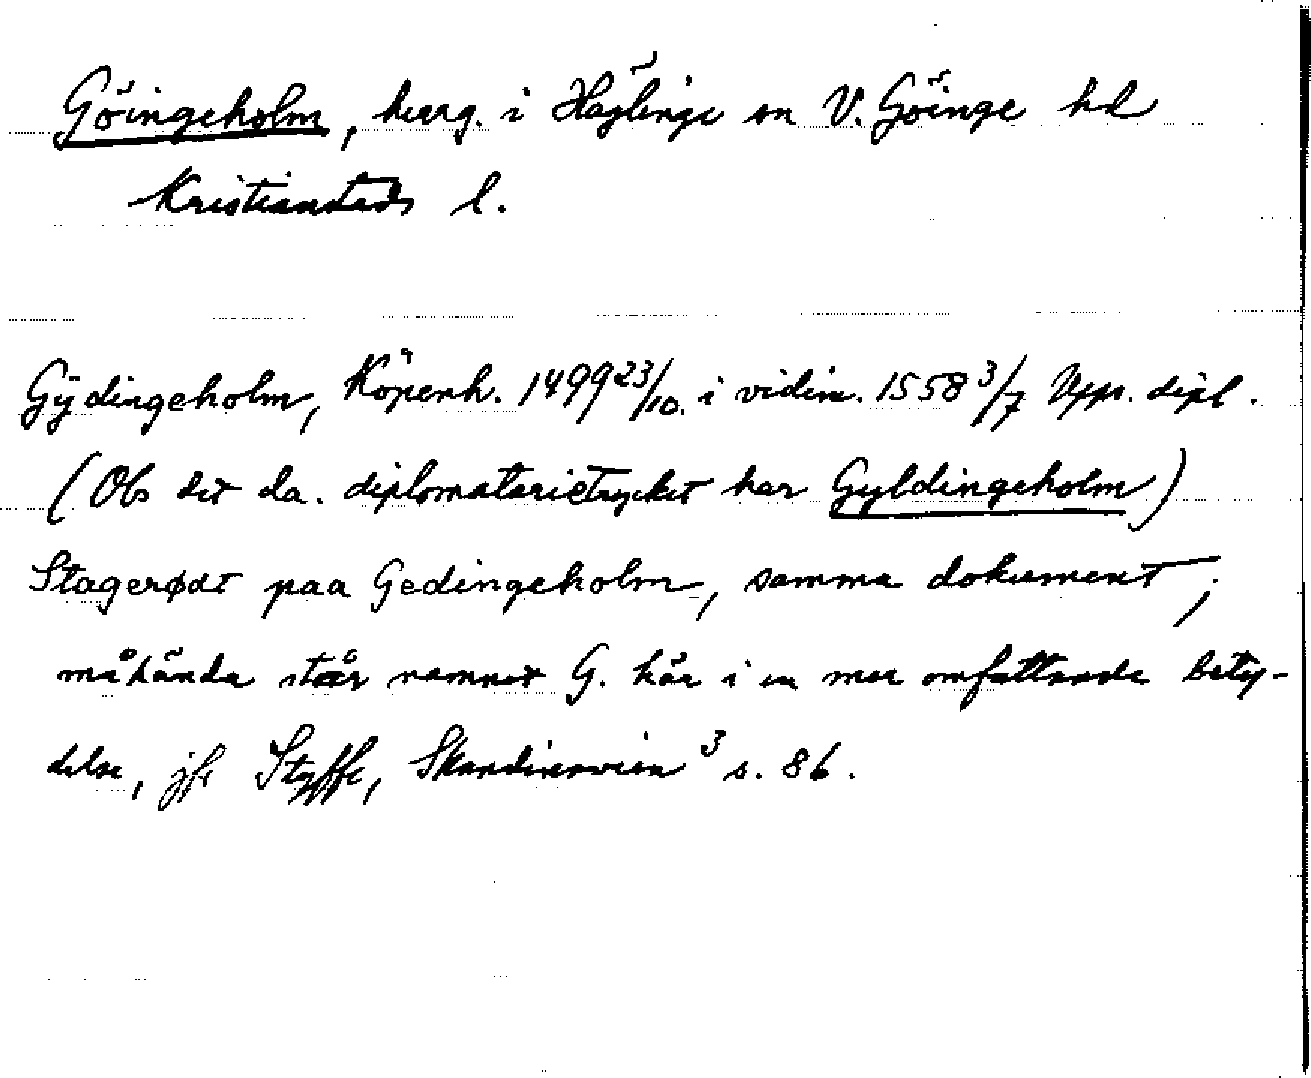 Göingeholm, herrg. i Häglinge sn V. Göinge hd
Kristianstads l.
Gÿdingeholm, Köpenh. 1499 23/10 i vidim. 1558 3/7 Upps. dipl.
(Obs det da. diplomatarietrycket har Gyldingeholm)
Stagerødt paa Gedingeholm, samma dokument;
måhända står namnet G. här i en mer omfattande bety-
delse, jfr Styffe, Skandinavien 3 s. 86.